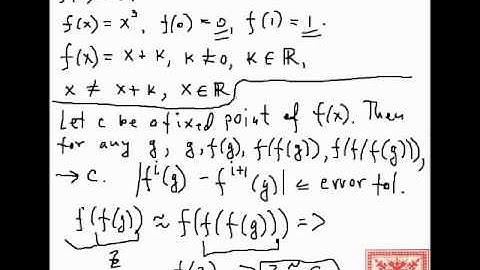 f(x) = x³, f(0) = 0, f(1) = 1.
f(x) = x + k, k ≠ 0, k ∈ ℝ,
x ≠ x + k, x ∈ ℝ
Let c be a fixed point of f(x). Then
for any g, g, f(g), f(f(g)), f(f(f(g))),
→ c. |fⁱ(g) - fⁱ⁺¹(g)| ≤ error tol.
f(f(g)) ≈ f(f(f(g))) =>
z